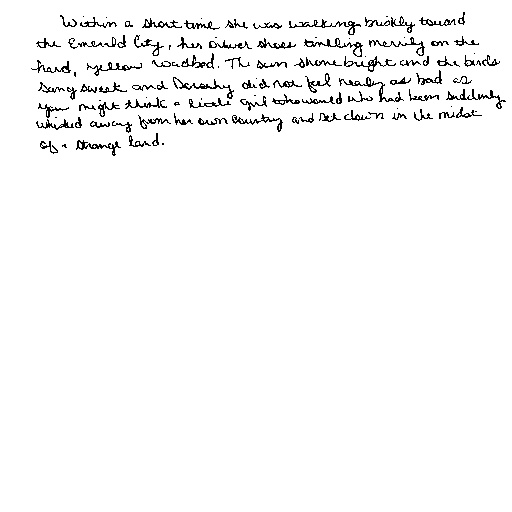 Within a short time she was walking briskly toward
the Emerald City, her Silver Shoes tinkling merrily on the
hard, yellow roadbed. The sun shone bright and the birds
sang sweet and Dorothy did not feel nearly as bad as
you might think a little girl who would who had been suddenly
whisked away from her own country and set down in the midst
of a strange land.